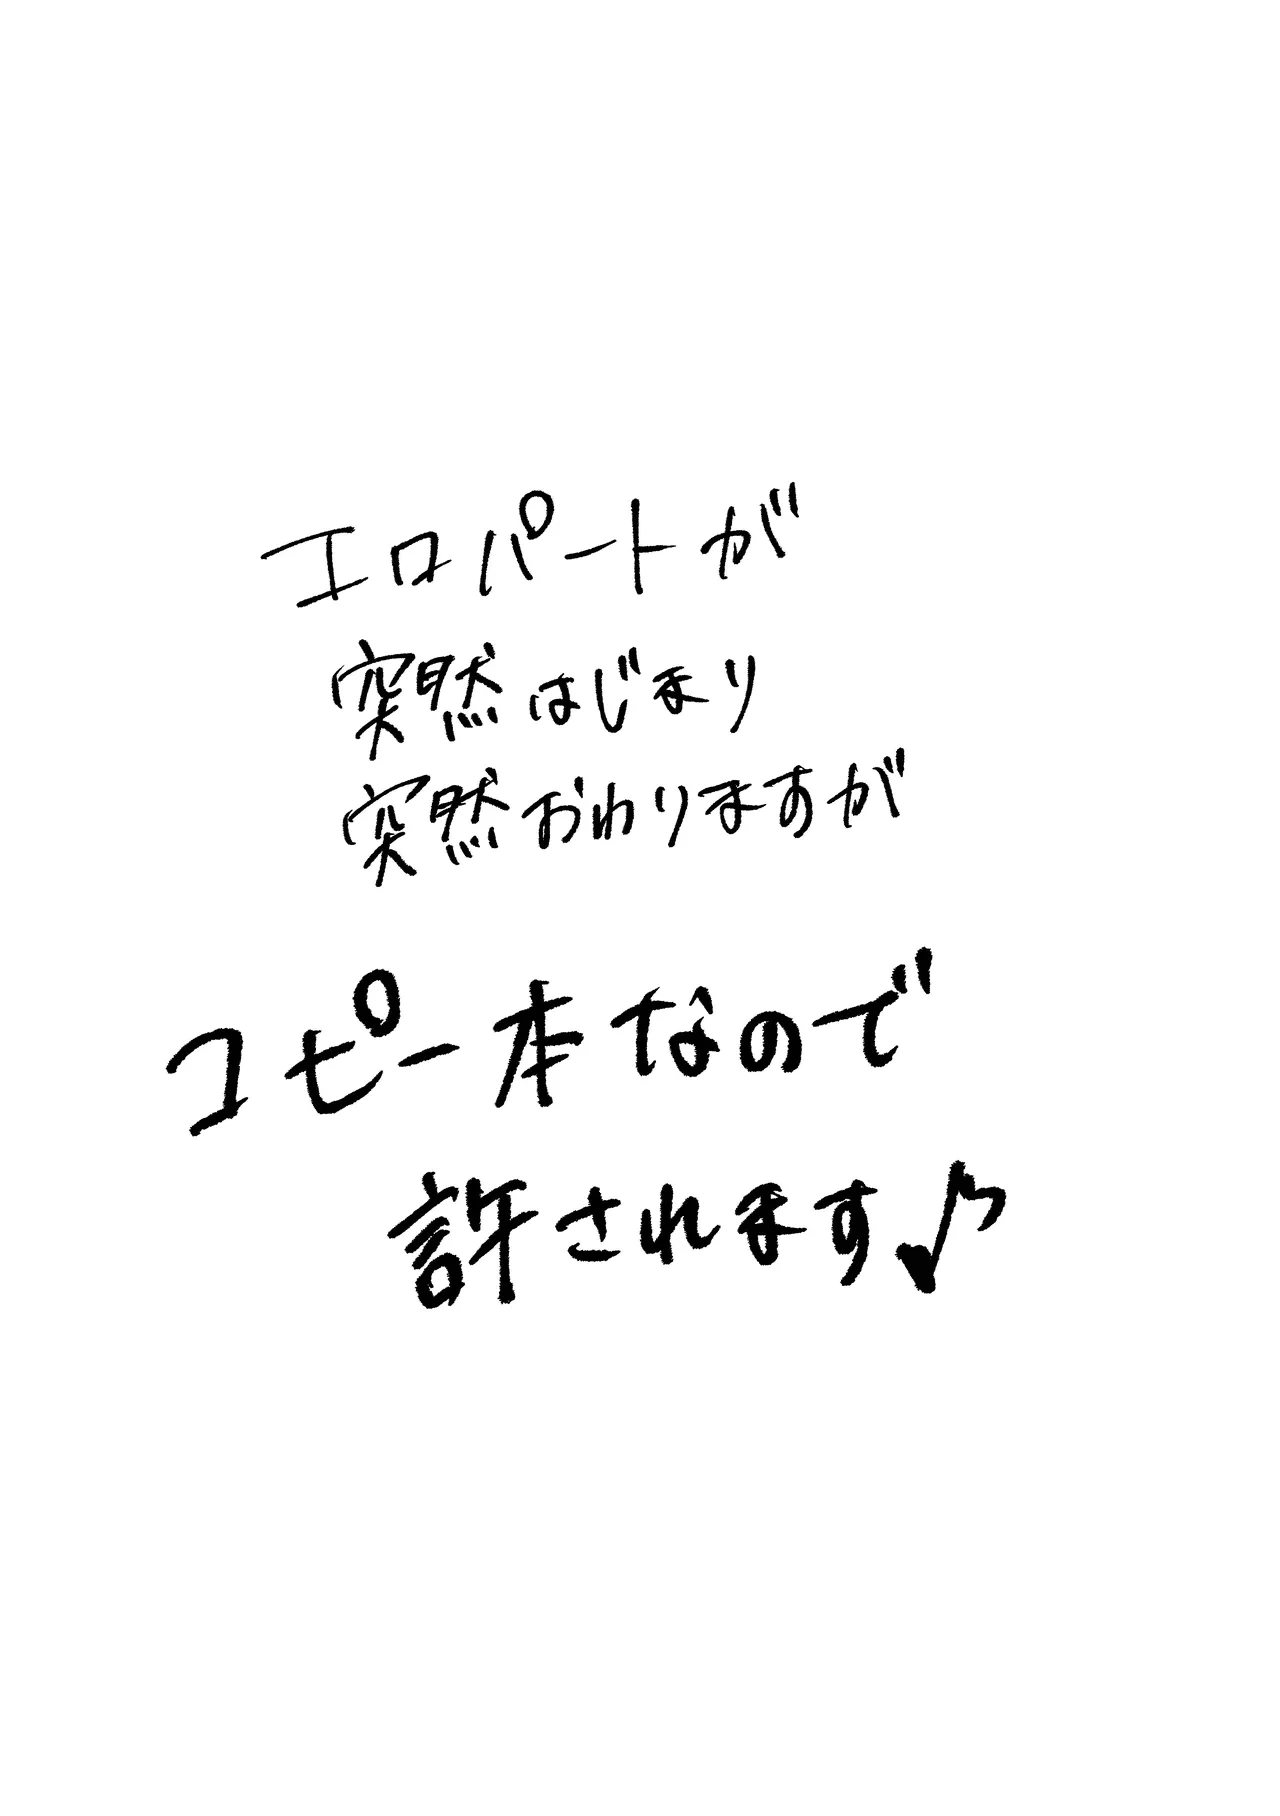 エロパートが
突然はじまり
突然おわりますが
コピー本なので
許されます♪